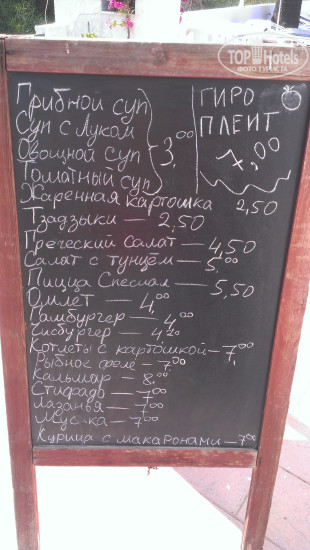 TOP Hotels
ФОТО ТУРИСТА
Грибной суп
Суп с Луком
Овощной суп
Томатный суп
3,00
ГИРО
ПЛЕИТ
7,00
Жаренная картошка 2,50
Тзадзыки — 2,50
Греческий салат — 4,50
Салат с тунцем — 5,00
Пицца Спесиал — 5,50
Омлет — 4,00
Гамбургер — 4,00
Чисбургер — 4
Котлеты с картошкой — 7,00
Рыбное филе — 7,00
Кальмар — 8,00
Стифадо — 7,00
Лазанья — 7,00
Мусака — 7,00
Курица с макаронами — 7,00